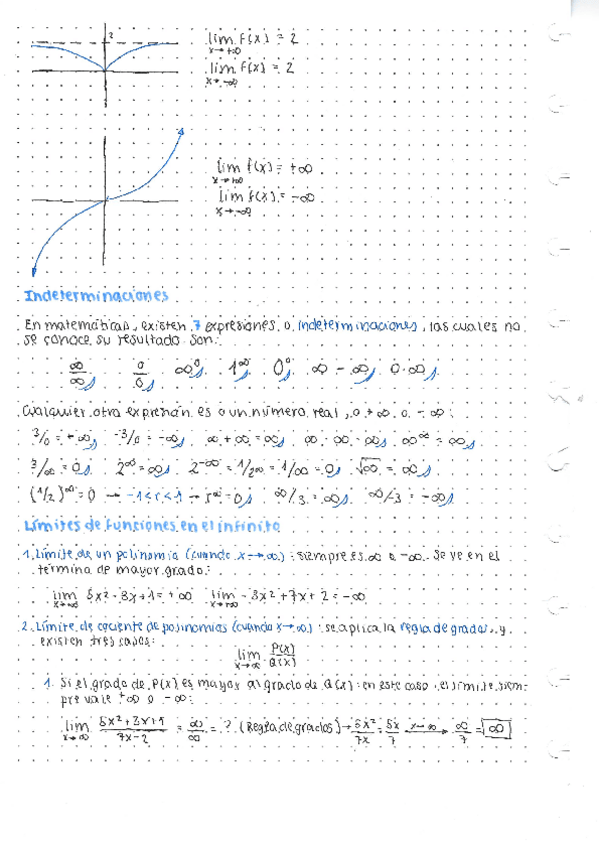 2
lim f(x) = 2
x→+∞
lim f(x) = 2
x→-∞
lim f(x) = +∞
x→+∞
lim f(x) = -∞
x→-∞
Indeterminaciones
En matemáticas, existen 7 expresiones o indeterminaciones, las cuales no
se conoce su resultado. Son:
∞/∞, 0/0, ∞⁰, 1^∞, 0⁰, ∞ - ∞, 0·∞
Cualquier otra expresión es o un número real, o +∞ o -∞:
3/0 = +∞, -3/0 = -∞, ∞ + ∞ = ∞, ∞ · ∞ = ∞, ∞^∞ = ∞,
3/∞ = 0, 2^∞ = ∞, 2^-∞ = 1/2^∞ = 1/∞ = 0, √∞ = ∞,
(1/2)^∞ = 0 → -1 < r < 1 → r^∞ = 0, ∞/3 = ∞, ∞/-3 = -∞,
Límites de funciones en el infinito
1. Límite de un polinomio (cuando x→∞): siempre es ∞ o -∞. Se ve en el
término de mayor grado:
lim 5x² - 8x + 1 = +∞ lim - 3x² + 7x + 2 = -∞
x→∞ x→∞
2. Límite de cociente de polinomios (cuando x→∞): se aplica la regla de grados, y
existen tres casos:
lim P(x)/Q(x)
x→∞
1. Si el grado de P(x) es mayor al grado de Q(x): en este caso, el límite siem-
pre vale +∞ o -∞:
lim (5x² + 3x + 1)/(7x - 2) = ∞/∞ = ? (Regla de grados) → 5x²/7x = 5x/7 x→∞ → ∞/7 = ∞
x→∞